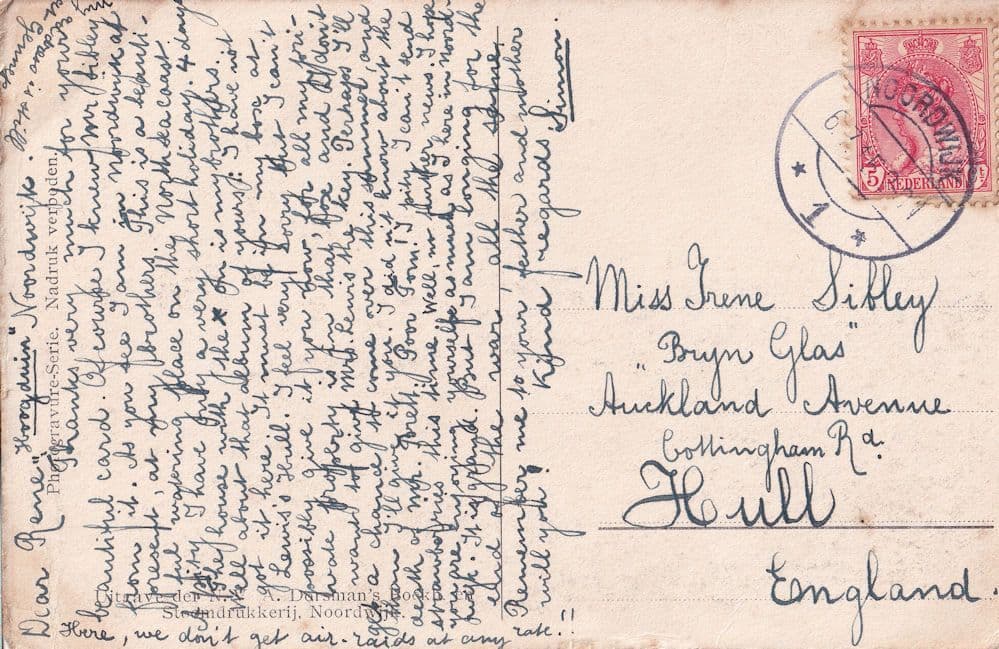 Dear Rene "Hoogduin" Noordwijk.
Thanks very much for your
beautiful card. Of course I knew Mr Sibley
from it. As you see I am in Noordwijk at
present, at my brothers. This is a beauti-
ful watering place on the Northseacoast
pity I have only a very short holiday. 4 days
The house with the x on is my brothers.
Tell about that album of yours; I have not
got it here. It must be in my box at
Lewis's Hull. I feel very sorry but I can't
possibly give it you now, for all my pri-
vate property is in that box and I don't
want to give Mrs. Lewis the key. Perhaps I'll
get a chance to come over this summer, and
then I'll give it you. I did not know about the
death of Mr. Brett. Poor Tom! I pity him. I can't send
strawberries this time. Well, no further news. I hope
you're enjoying yourself as much as I here in Noord-
wijk. It is grand. But I am longing for the
end of the war all the same.
Remember me to your father and mother
will you? Kind regards Simon.
my
address is
still
Here, we don't get air-raids at any rate!!
Photogravure-Serie. Nadruk verboden.
Uitgave der N.V. A. Dorsman's Boekh. en
Stoomdrukkerij, Noordwijk.
NOORDWIJK
1
5
NEDERLAND
Miss Irene Sibley
"Bryn Glas"
Auckland Avenue
Cottingham Rd.
Hull
England.